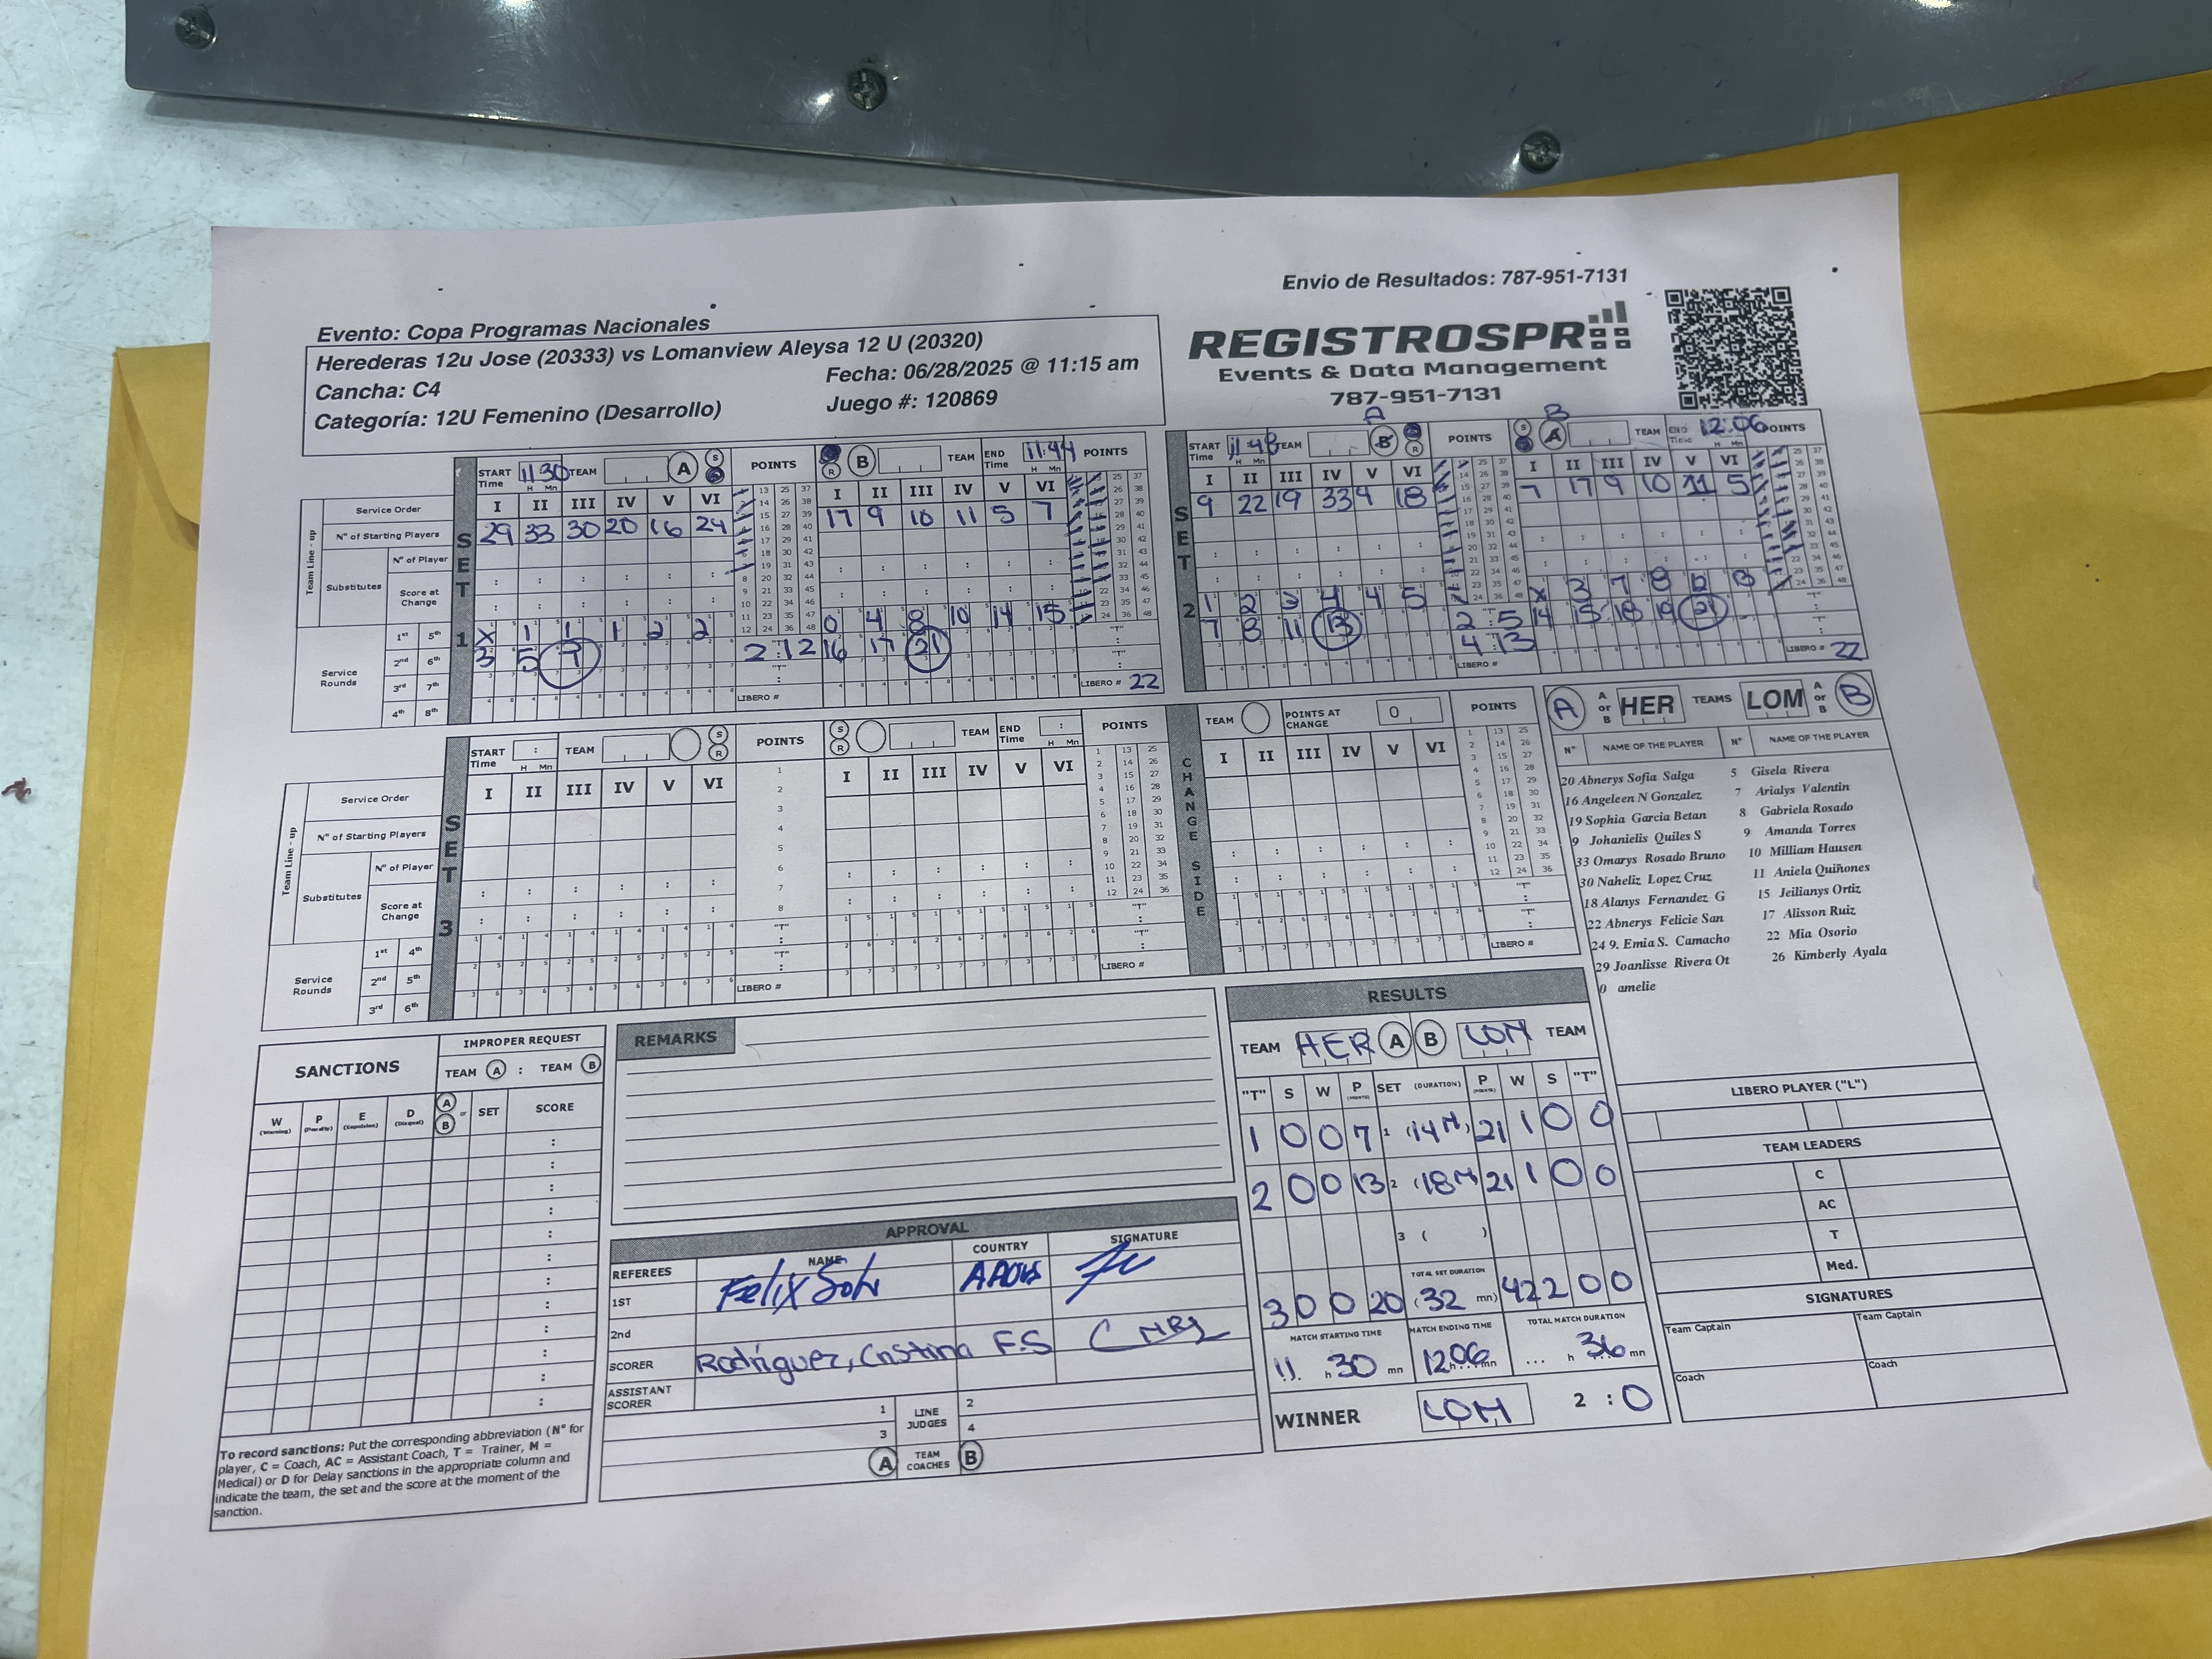 Envio de Resultados: 787-951-7131
Evento: Copa Programas Nacionales
Herederas 12u Jose (20333) vs Lomanview Aleysa 12 U (20320)
Cancha: C4
Fecha: 06/28/2025 @ 11:15 am
Categoría: 12U Femenino (Desarrollo)
Juego #: 120869
REGISTROSPR
Events & Data Management
787-951-7131
START Time 11:30 TEAM A S R POINTS
S R B TEAM END Time 11:44 POINTS
START Time 11:48 TEAM B A S R POINTS
S R A B TEAM END Time 12:06 POINTS
Team Line-up
Service Order I II III IV V VI
I II III IV V VI
I II III IV V VI
I II III IV V VI
N° of Starting Players 29 33 30 20 16 24
17 9 10 11 5 7
9 22 19 33 4 18
7 17 9 10 11 5
Substitutes
N° of Player
Score at Change
SET 1
SET 2
Service Rounds
1st 5th X 1 1 1 2 2
0 4 8 10 14 15
1 2 3 4 4 5
X 3 7 8
2nd 6th 3 5 7 2:12
16 17 21
7 8 11 13 2:5
14 15 18 19 21
4:13
3rd 7th
4th 8th
LIBERO #
LIBERO # 22
LIBERO #
LIBERO # 22
START Time : TEAM S R POINTS
S R TEAM END Time : POINTS
TEAM POINTS AT CHANGE 0 POINTS
Team Line-up
Service Order I II III IV V VI
I II III IV V VI
I II III IV V VI
N° of Starting Players
Substitutes
N° of Player
Score at Change
SET 3
CHANGE SIDE
Service Rounds
1st 4th
2nd 5th
3rd 6th
LIBERO #
LIBERO #
LIBERO #
A A or B HER TEAMS LOM A or B B
N° NAME OF THE PLAYER N° NAME OF THE PLAYER
20 Abnerys Sofia Salga 5 Gisela Rivera
16 Angeleen N Gonzalez 7 Arialys Valentin
19 Sophia Garcia Betan 8 Gabriela Rosado
9 Johanielis Quiles S 9 Amanda Torres
33 Omarys Rosado Bruno 10 Milliam Hausen
30 Naheliz Lopez Cruz 11 Aniela Quiñones
18 Alanys Fernandez G 15 Jeilianys Ortiz
22 Abnerys Felicie San 17 Alisson Ruiz
24 9. Emia S. Camacho 22 Mia Osorio
29 Joanlisse Rivera Ot 26 Kimberly Ayala
0 amelie
LIBERO PLAYER ("L")
TEAM LEADERS
C
AC
T
Med.
SIGNATURES
Team Captain Team Captain
Coach Coach
SANCTIONS
IMPROPER REQUEST
TEAM A : TEAM B
W (Warning) P (Penalty) E (Expulsion) D (Disqual) A or B SET SCORE
To record sanctions: Put the corresponding abbreviation (N° for
player, C = Coach, AC = Assistant Coach, T = Trainer, M =
Medical) or D for Delay sanctions in the appropriate column and
indicate the team, the set and the score at the moment of the
sanction.
REMARKS
APPROVAL
REFEREES NAME COUNTRY SIGNATURE
1ST Felix
2nd
SCORER Rodríguez, Cristina F.S
ASSISTANT SCORER
1 LINE JUDGES 2
3 4
A TEAM COACHES B
RESULTS
TEAM HER A B LOM TEAM
"T" S W P (POINTS) SET (DURATION) P (POINTS) W S "T"
1 0 0 7 1 (14 M) 21 1 0 0
2 0 0 13 2 (18 M) 21 1 0 0
3 ( )
TOTAL SET DURATION
3 0 0 20 (32 mn) 42 2 0 0
MATCH STARTING TIME MATCH ENDING TIME TOTAL MATCH DURATION
11 h 30 mn 12 h 06 mn ... h 36 mn
WINNER LOM 2 : 0